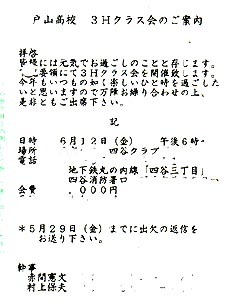 戸山高校　3Hクラス会のご案内
拝啓
皆様には元気でお過ごしのことと存じます。
要領にて3Hクラス会を開催致します。
今年もいつもの如く楽しいひと時を過したい
と思いますので万障お繰り合わせの上、
是非ともご出席下さい。
記
日時　6月12日（金）　午後6時
場所　四谷クラブ
電話
地下鉄丸の内線「四谷三丁目」
四谷消防署口
会費　000円
*5月29日（金）までに出欠の返信を
お送り下さい。
幹事
赤間憲文
村上保夫